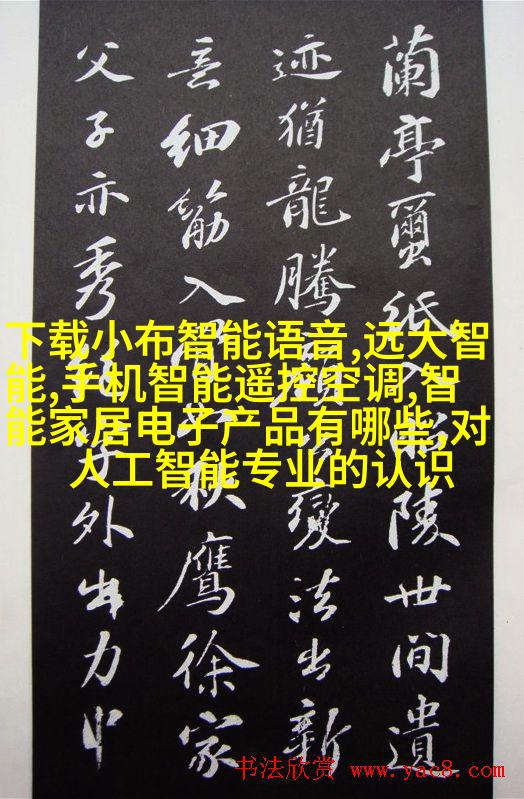 蘭亭蠒紙入昭陵世間遺
迹猶龍騰顏公變法出新
意細筋入骨如秋鷹徐家
父子亦秀絕字外出力中
下载小布智能语音,远大智
能,手机智能遥控空调,智
能家居电子产品有哪些,对
人工智能专业的认识
书法欣赏 www.yac8.com